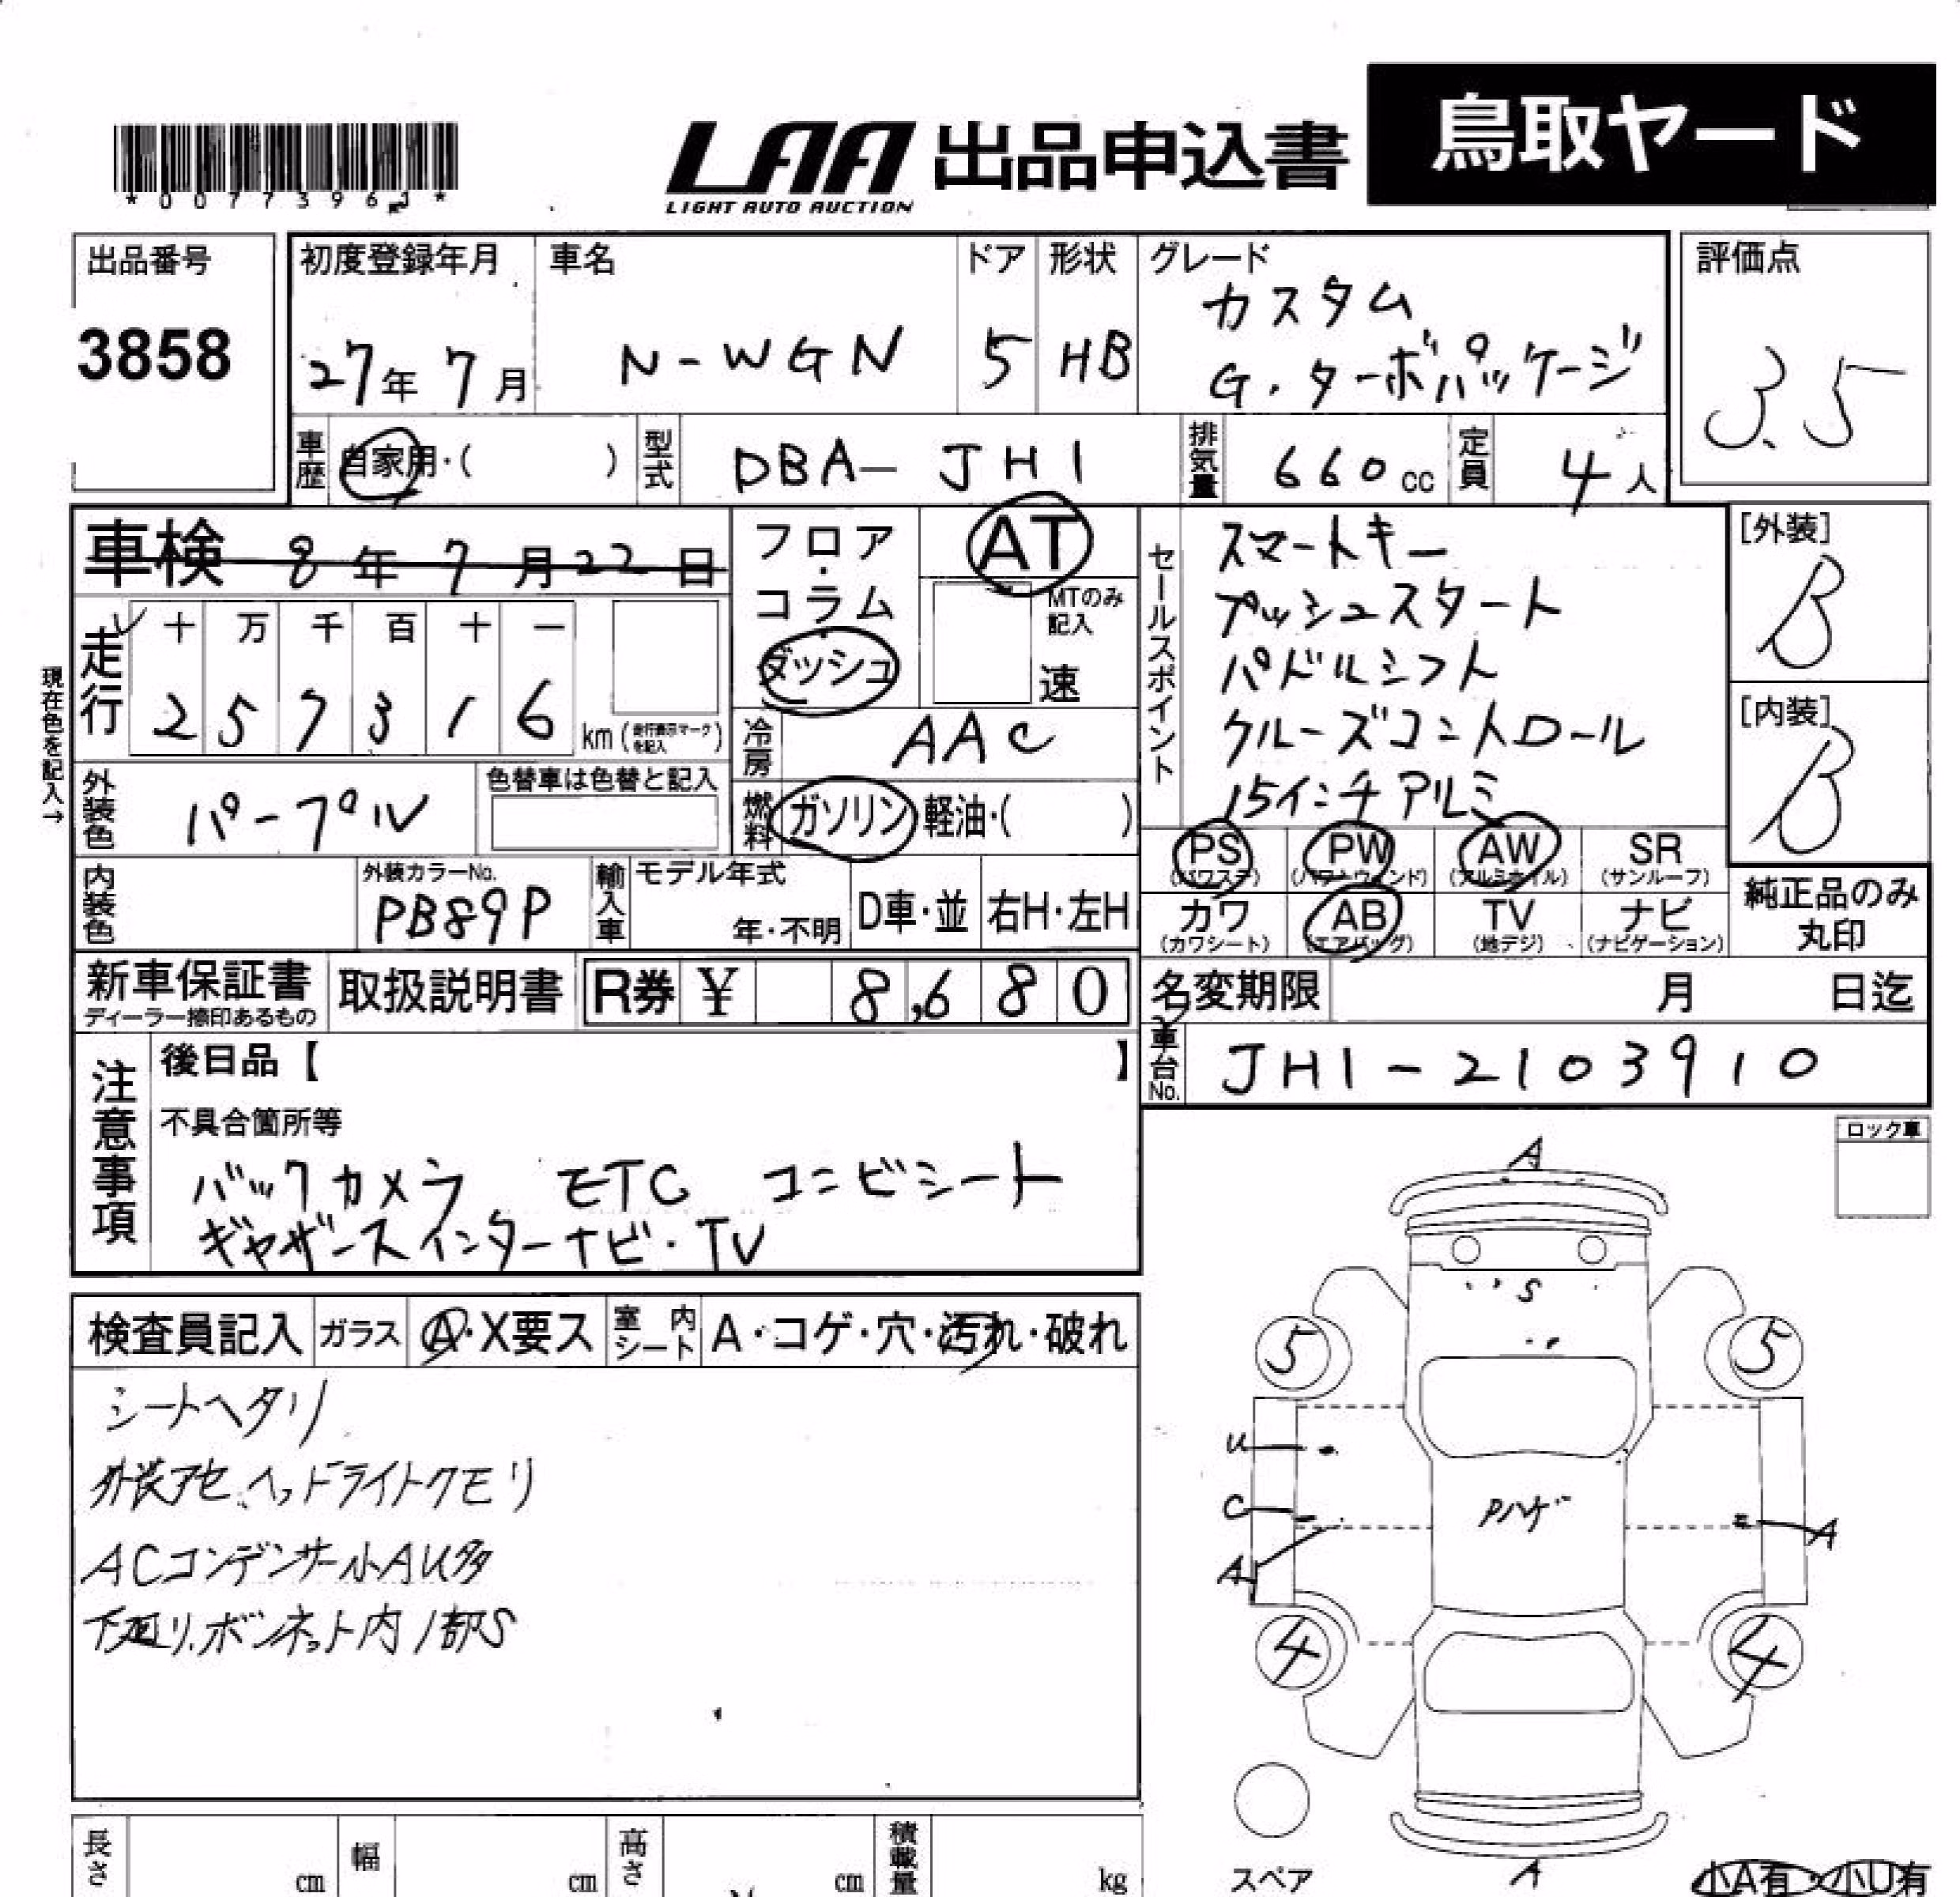 鳥取ヤード
LAA 出品申込書
LIGHT AUTO AUCTION
*00773961*
出品番号
3858
初度登録年月
27年 7月
車名
N-WGN
ドア
5
形状
HB
グレード
カスタム
G・ターボパッケージ
評価点
3.5
車歴 自家用・( )
型式 DBA-JH1
排気量 660cc
定員 4人
車検 8年 7月22日
フロア・コラム・ダッシュ
AT
MTのみ記入
速
セールスポイント
スマートキー
プッシュスタート
パドルシフト
クルーズコントロール
15インチアルミ
[外装]
B
[内装]
B
現在色を記入→
走行 十 万 千 百 十 一
2 5 7 3 1 6 km(走行表示マークを記入)
冷房 AAC
外装色 パープル
色替車は色替と記入
燃料 ガソリン・軽油・( )
PS (パワステ) PW (パワーウィンド) AW (アルミホイル) SR (サンルーフ)
カワ (カワシート) AB (エアバッグ) TV (地デジ) ナビ (ナビゲーション)
純正品のみ丸印
内装色
外装カラーNo.
PB89P
輸入車 モデル年式
年・不明
D車・並
右H・左H
新車保証書
ディーラー捺印あるもの
取扱説明書
R券 ¥ 8,680
名変期限 月 日迄
車台No. JH1-2103910
注意事項
後日品【 】
不具合箇所等
バックカメラ ETC コンビシート
ギャザーズインターナビ・TV
ロック車
検査員記入 ガラス A・X要ス 室内シート A・コゲ・穴・汚れ・破れ
シートヘタリ
外装アセ、ヘッドライトクモリ
ACコンデンサー小AU多
下廻り、ボンネット内1部S
A
S
5 5
U
Pハゲ
C
A
A
4 4
A
スペア
小A有・小U有
長さ cm
幅 cm
高さ cm
積載量 kg